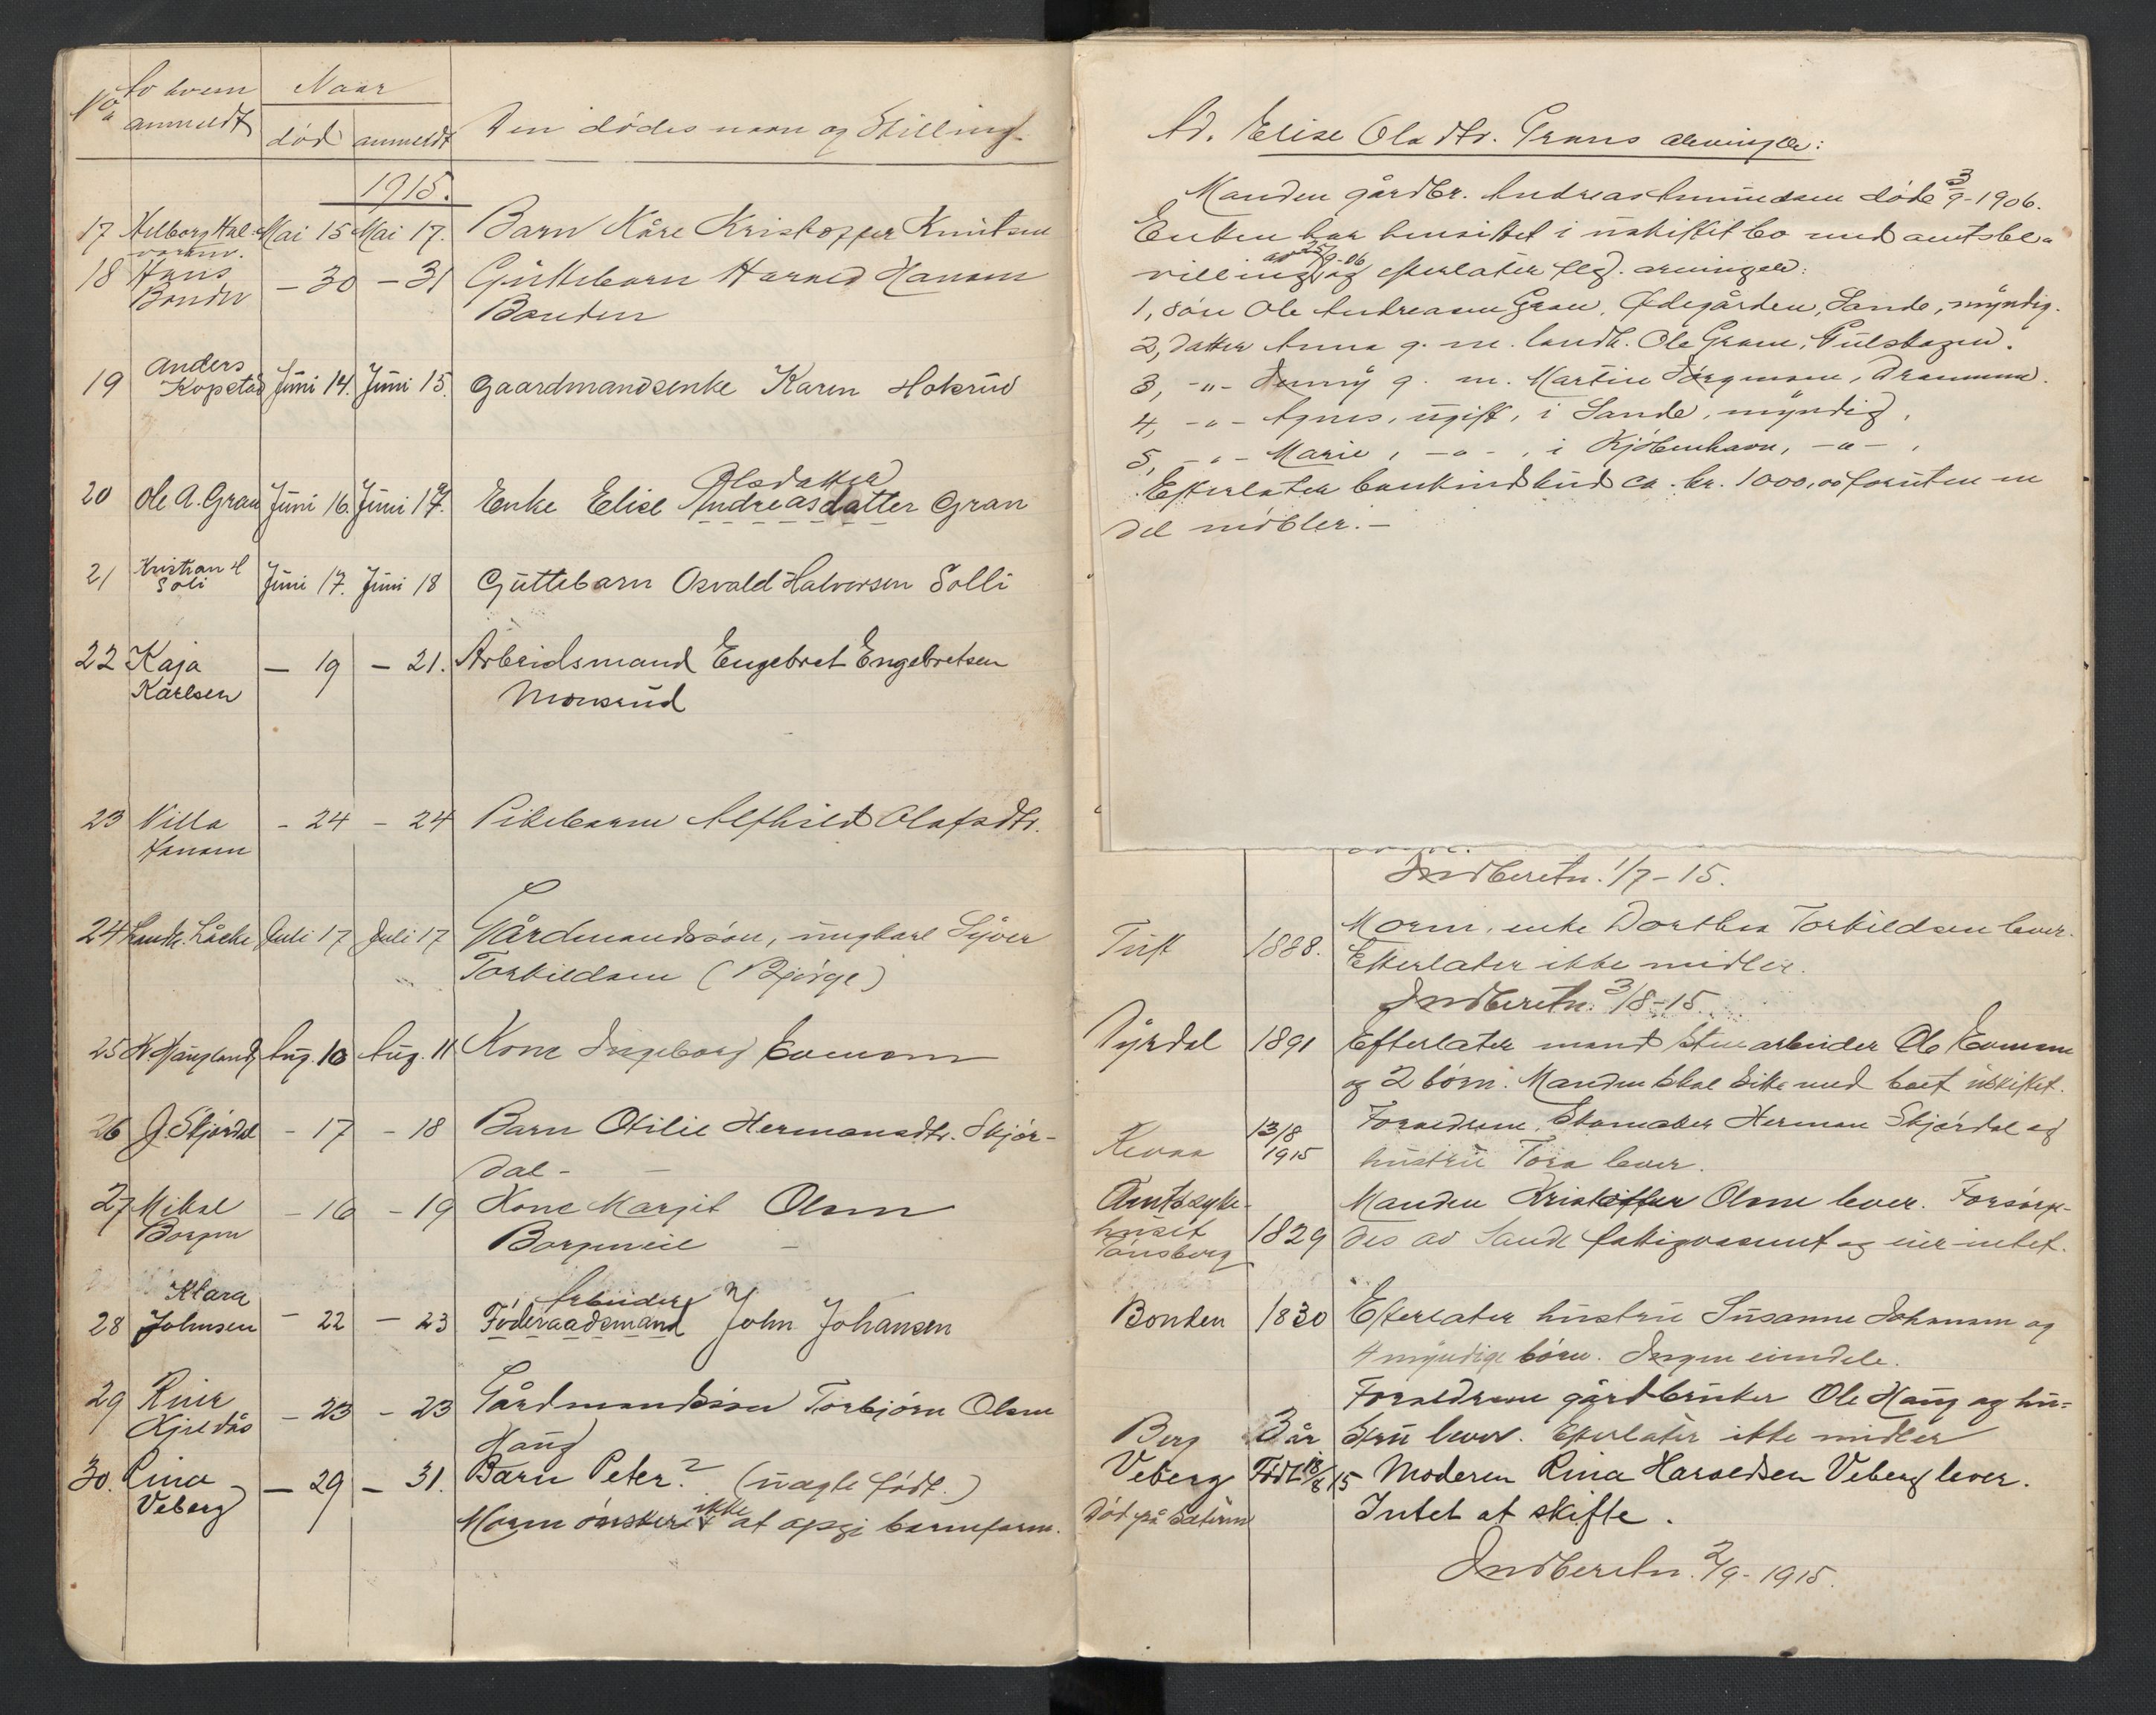 No Av hvem anmeldt Naar død anmeldt Den dødes navn og Stilling
1915.
17 Helborg Hal- Mai 15 Mai 17. Barn Kåre Kristoffer Knutsen
vorsen.
18 Hans Bonden - 30 - 31 Guttebarn Harald Hansen
Bonden
19 Anders Kopstad Juni 14. Juni 15. Gaardmandsenke Karen Hoksrud
Olsdatter
20 Ole A. Gran Juni 16. Juni 17. Enke Elise Andreasdatter Gran
21 Kristian H Soli Juni 17. Juni 18 Guttebarn Osvald Halvorsen Solli
22 Kaja Karlsen - 19 - 21. Arbeidsmand Engebret Engebretsen
Monsrud
23 Villa Hansen - 24 - 24 Pikebarn Alfhild Olafsdtr.
24 Landh. Låche Juli 17 Juli 17 Gårdmandssøn, ungkarl Syver
Torkildsen (Bjørge)
25 N Haugland Aug. 10 Aug. 11 Kone Ingeborg Evensen
26 J. Skjørdal - 17 - 18 Barn Otilie Hermansdtr. Skjør-
dal -
27 Mikal Borgen - 16 - 19 Kone Margit Olsen
Borgeneie -
Arbeider
28 Klara Johnsen - 22 - 23 Föderaadsmand John Johansen
29 Riner Kjeldås - 23 - 23 Gårdmandssøn Torbjørn Olsen
Haug
30. Rina Veberg - 29 - 31. Barn Peter? (uægte født.)
Moren ønsker ikke at opgi barnefaren.
Ad. Elise Olsdtr. Grans arvinger:
Manden gårdbr. Andreas Amundsen døde 3/9-1906.
Enken har hensittet i uskiftet bo med amtsbe-
villing av 25/9-06 og efterlater flg. arvinger:
1, Søn Ole Andreasen Gran, Ødegården, Sande, myndig.
2, datter Anna g. m. landh. Ole Gran, Gulskogen.
3, -"- Jenny g. m. Martin Jørgensen, Drammen.
4, -"- Agnes, ugift, i Sande, myndig.
5, -"- Marie, -"-, i Kjøbenhavn, -"-.
Efterlater bankindskud ca. kr. 1000,00 foruten en
del møbler.-
Indberetn. 1/7-15.
Tuft 1888. Moren, enke Dorthea Torkildsen lever.
Efterlater ikke midler.
Indberetn. 3/8-15.
Dyrdal 1891 Efterlater mand Stenarbeider Ole Evensen
og 2 børn. Manden skal sitte med boet uskiftet.
Revaa 13/8 1915 Forældrene, Skomaker Herman Skjørdal og
hustru Tora lever.
Amtssyke-
huset Tønsberg 1829 Manden Kristoffer Olsen lever. Forsørg-
des av Sande fattigvæsen og eier intet.
Bonden 1830 Efterlater hustru Susanne Johansen og
4 myndige børn. Ingen eiendele.
Forældrene gårdbruker Ole Haug og hu-
Berg 3 år stru lever. Efterlater ikke midler
Veberg Født 18/8 15 Moderen Rina Haraldsen Veberg lever.
Død på sæteren Intet at skifte.
Indberetn. 2/9-1915.